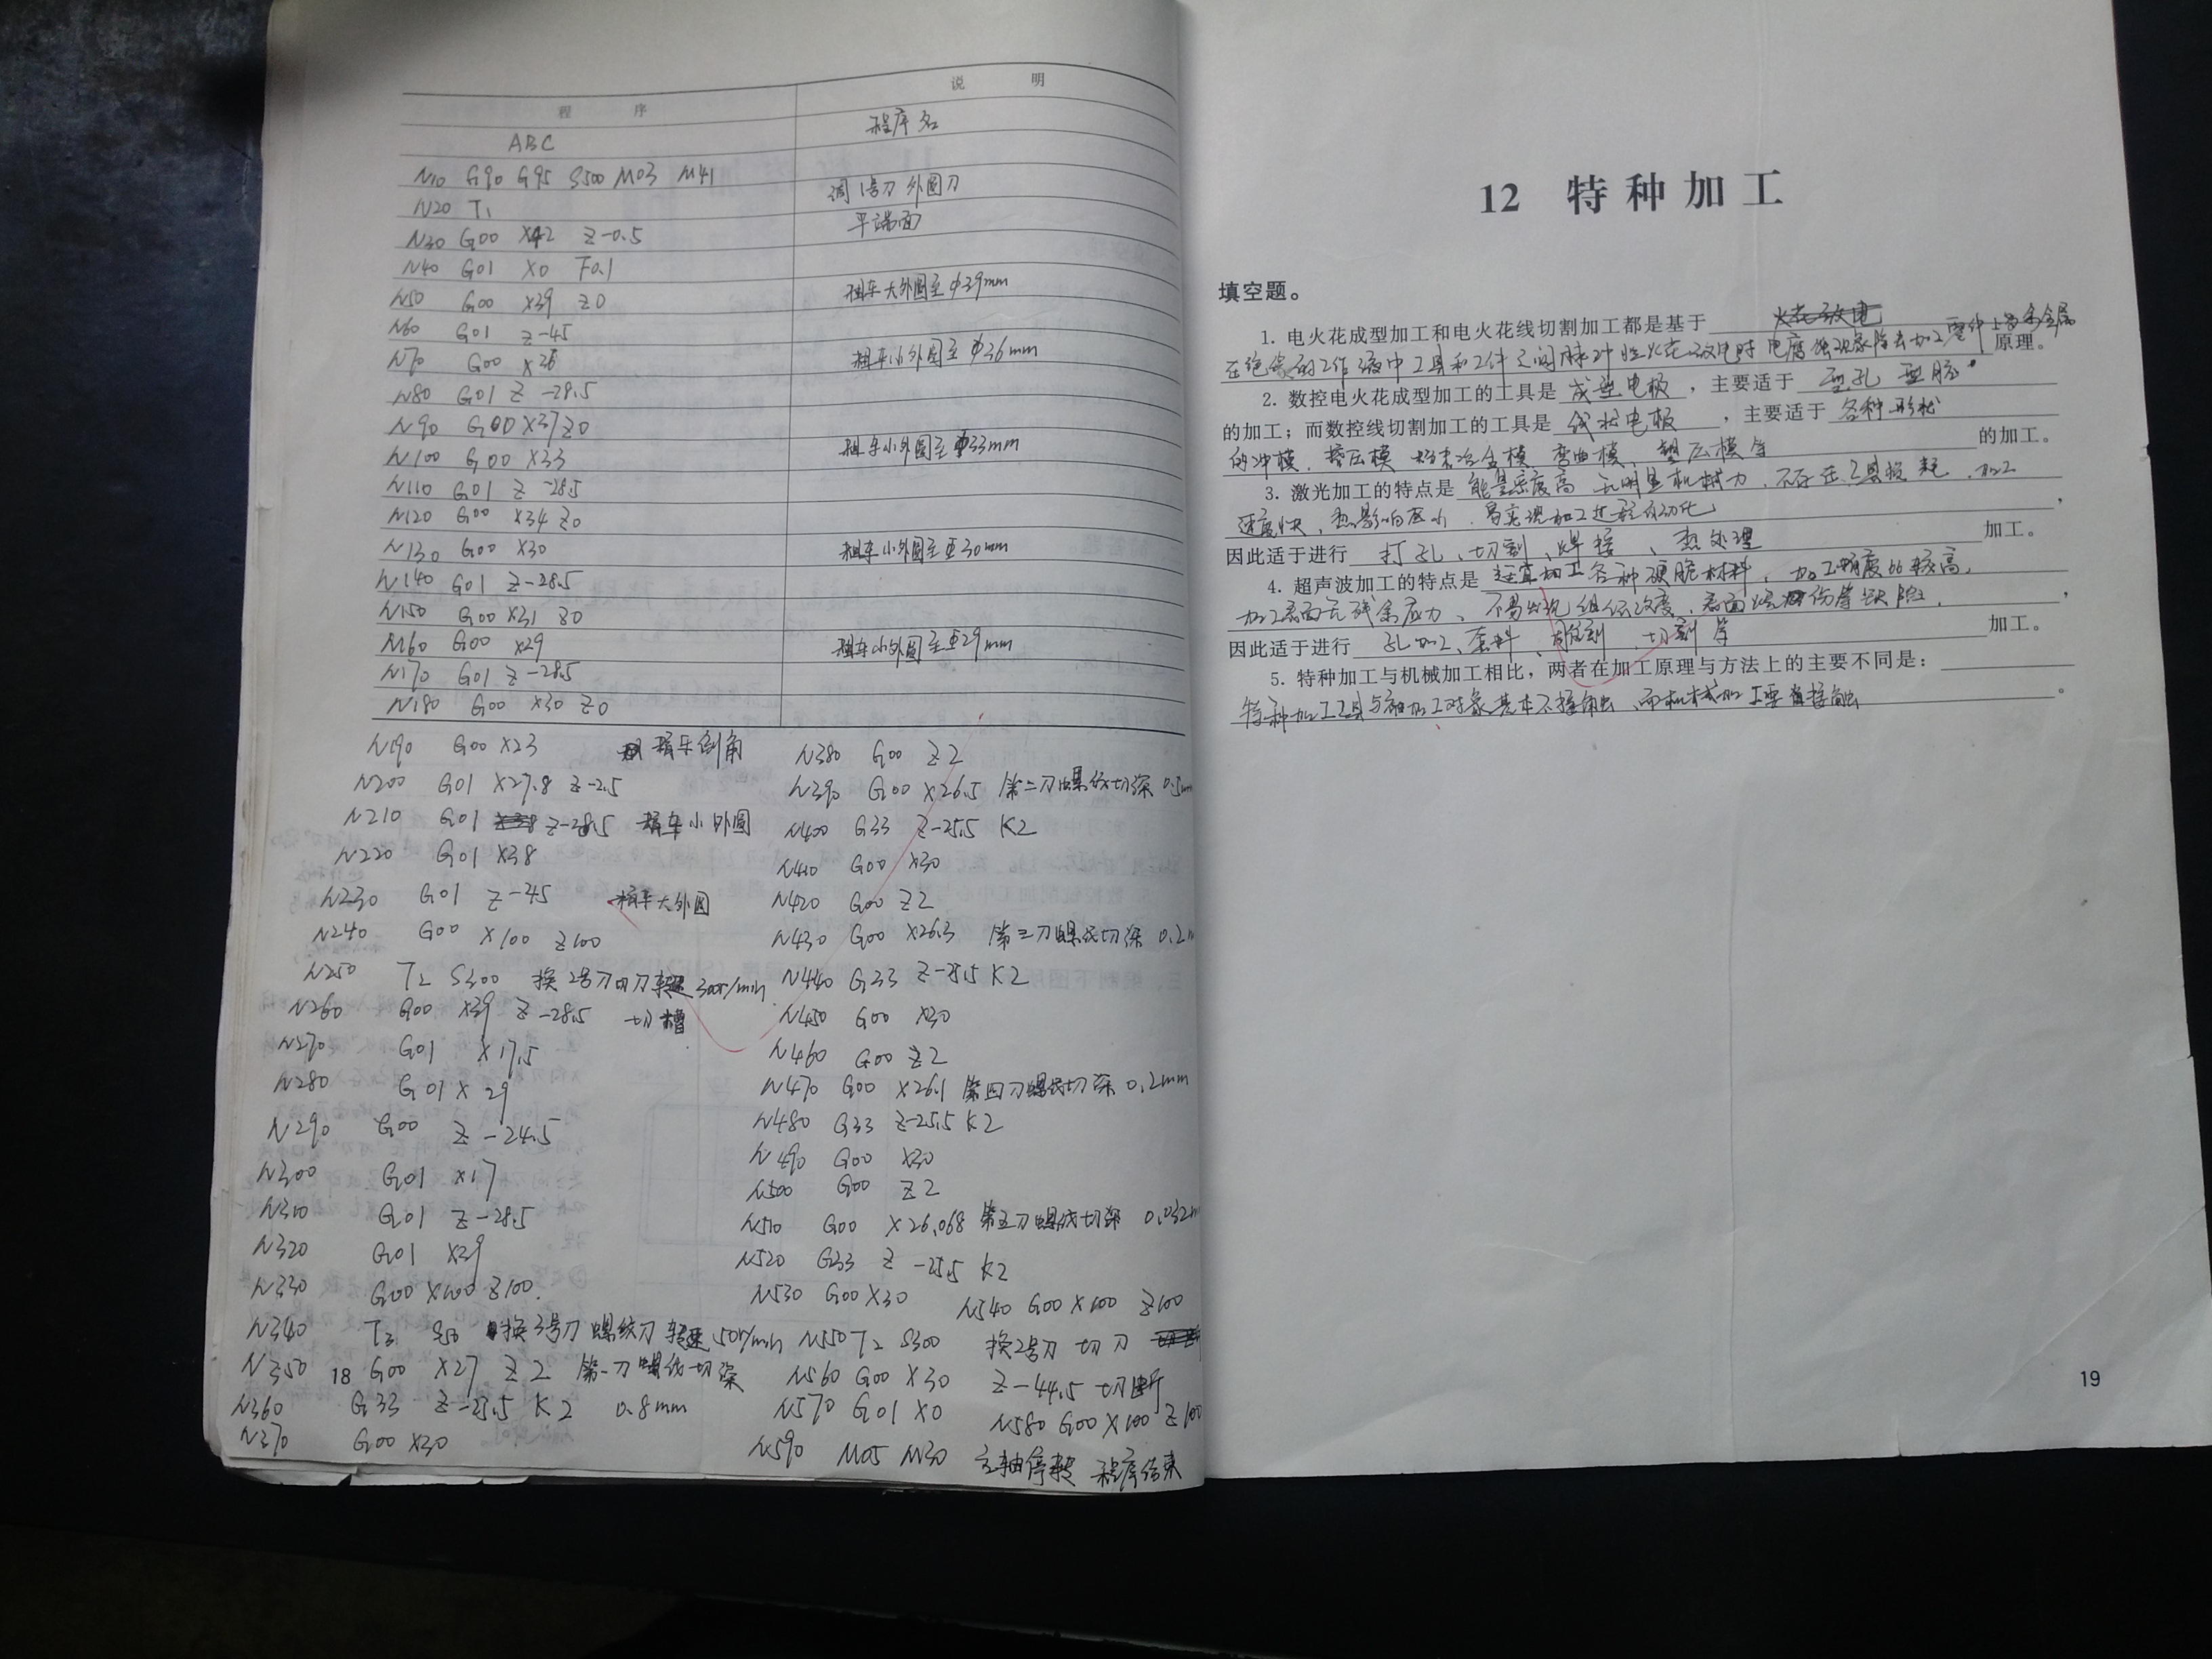 程 序 说 明
ABC 程序名
N10 G90 G95 S500 M03 M41
N20 T1 调1号刀 外圆刀
N30 G00 X42 Z-0.5 平端面
N40 G01 X0 F0.1
N50 G00 X39 Z0 粗车大外圆至φ39mm
N60 G01 Z-45
N70 G00 X36 粗车小外圆至φ36mm
N80 G01 Z-28.5
N90 G00 X37 Z0
N100 G00 X33 粗车小外圆至φ33mm
N110 G01 Z-28.5
N120 G00 X34 Z0
N130 G00 X30 粗车小外圆至φ30mm
N140 G01 Z-28.5
N150 G00 X31 Z0
N160 G00 X29 粗车小外圆至φ29mm
N170 G01 Z-28.5
N180 G00 X30 Z0
N190 G00 X23 精车倒角
N200 G01 X27.8 Z-2.5
N210 G01 Z-28.5 精车小外圆
N220 G01 X38
N230 G01 Z-45 精车大外圆
N240 G00 X100 Z100
N250 T2 S300 换2号刀切刀转速300r/min
N260 G00 X39 Z-28.5 切槽
N270 G01 X17.5
N280 G01 X29
N290 G00 Z-24.5
N300 G01 X17
N310 G01 Z-28.5
N320 G01 X29
N330 G00 X100 Z100.
N340 T3 S50 换3号刀 螺纹刀 转速50r/min
N350 G00 X27 Z2 第一刀螺纹切深
N360 G33 Z-25.5 K2 0.8mm
N370 G00 X30
18
N380 G00 Z2
N390 G00 X26.5 第二刀螺纹切深 0.5m
N400 G33 Z-25.5 K2
N410 G00 X30
N420 G00 Z2
N430 G00 X26.3 第三刀螺纹切深 0.2
N440 G33 Z-25.5 K2
N450 G00 X30
N460 G00 Z2
N470 G00 X26.1 第四刀螺纹切深 0.2mm
N480 G33 Z-25.5 K2
N490 G00 X30
N500 G00 Z2
N510 G00 X26.068 第五刀螺纹切深 0.032m
N520 G33 Z-25.5 K2
N530 G00 X30 N540 G00 X100 Z100
N550 T2 S300 换2号刀 切刀
N560 G00 X30 Z-44.5 切断
N570 G01 X0 N580 G00 X100 Z100
N590 M05 M30 主轴停转 程序结束
12 特种加工
填空题。
1. 电火花成型加工和电火花线切割加工都是基于 火花放电
在绝缘的工作液中工具和工件之间脉冲性火花放电时电腐蚀现象除去加工零件上多余金属 原理。
2. 数控电火花成型加工的工具是 成型电极 ，主要适于 型孔 型腔
的加工；而数控线切割加工的工具是 线状电极 ，主要适于 各种形状
的冲模、挤压模 粉末冶金模 弯曲模、塑压模等 的加工。
3. 激光加工的特点是 能量密度高 无明显机械力、不存在工具损耗、加工
速度快、热影响区小、易实现加工过程自动化 ，
因此适于进行 打孔、切割、焊接、热处理 加工。
4. 超声波加工的特点是 适宜加工各种硬脆材料、加工精度比较高、
加工表面无残余应力、不易出现组织改变、表面烧伤等缺陷. ，
因此适于进行 孔加工、套料、雕刻、切割等 加工。
5. 特种加工与机械加工相比，两者在加工原理与方法上的主要不同是：
特种加工工具与被加工对象基本不接触、而机械加工要直接触 。
19